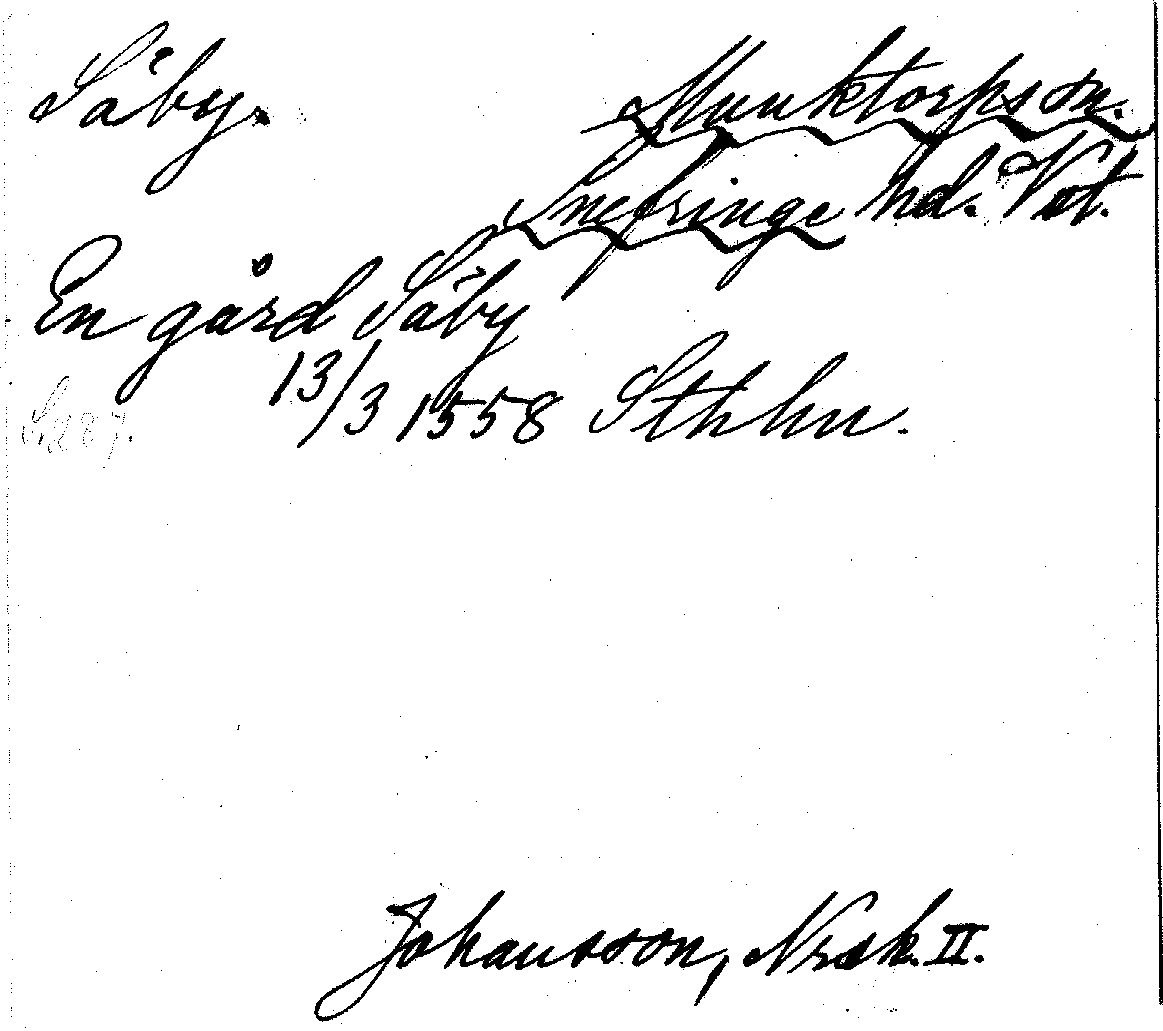 Såby.
Munktorps sn.
Snefringe hd. Vstm.
En gård Såby
13/3 1558 Sthlm.
S. 287.
Johansson, Norsk. II.